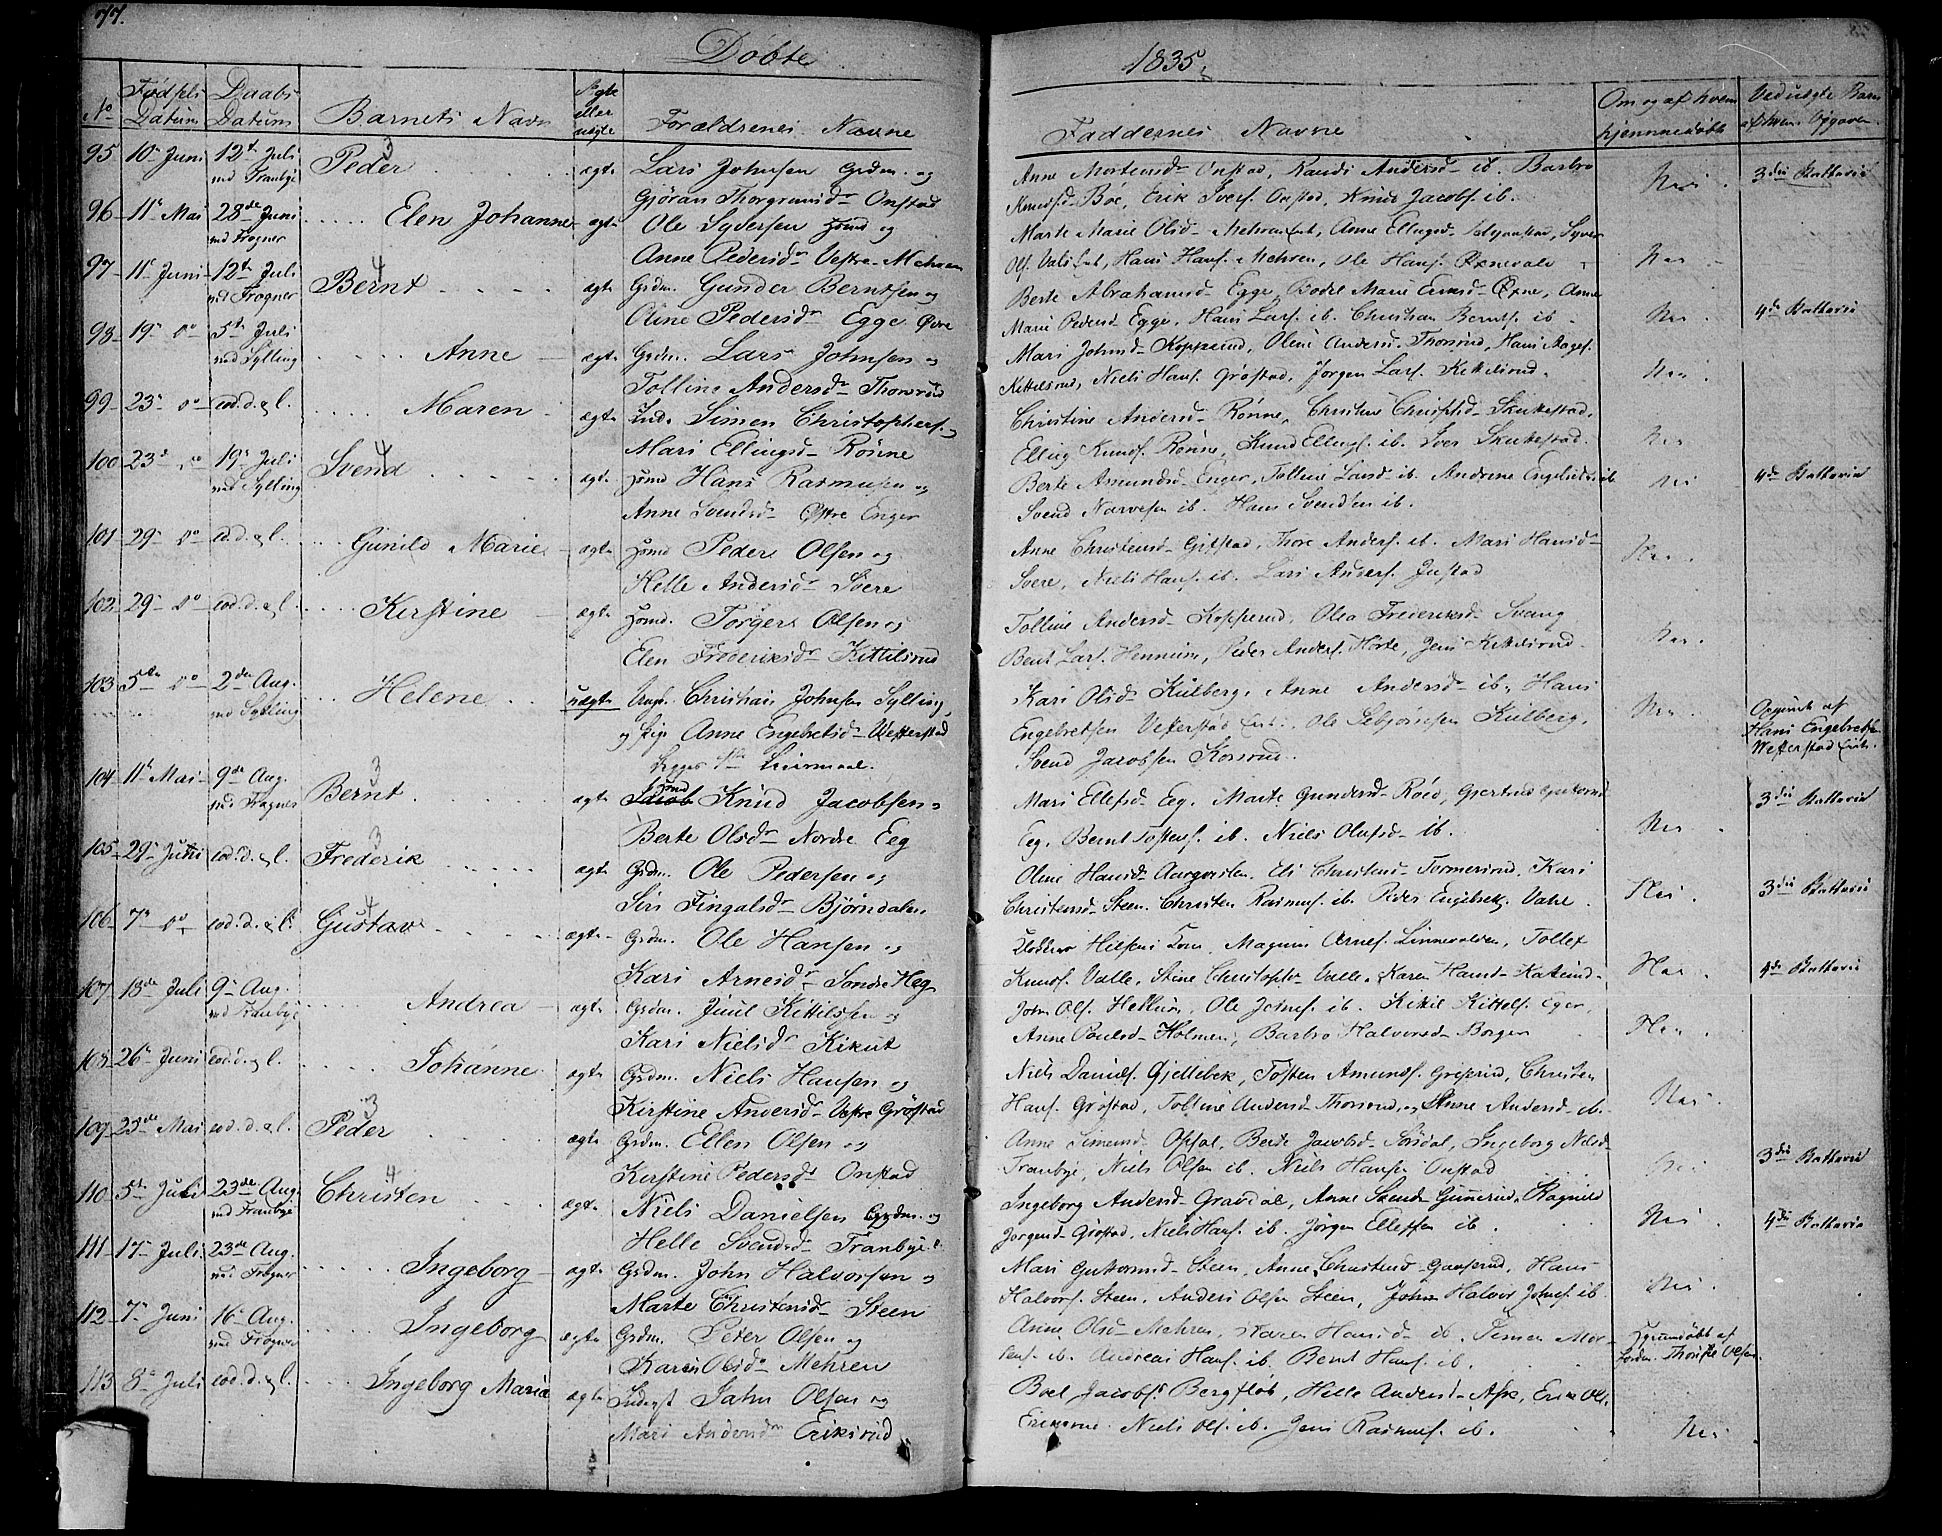 77.
Døbte
1835.
No
Fødsels Datum
Daabs Datum
Barnets Navn
Ægte eller uægte
Forældrenes Navne
Faddernes Navne
Om og af hvem hjemmedøbt
Ved uægte Barn af hvem Opgaven
95 10e Juni 12te Juli ved Tranbye Peder 3 ægte Lars Johnsen Grdm. og
Gjöran Thorgrimsdr Onstad
Anne Mortensd Onstad, Randi Andersd ib. Barbro
Knudsd Böe, Erik Ivers. Onstad, Knud Jacobs. ib.
Nei. 3die Battarie
96 11e Mai 28de Juni ved Frogner Elen Johanne ægte Ole Syversen Hsmd og
Anne Pedersdr Vestre Mehren
Marte Marie Olsd Mehren, Anne Ellingsd
Hans Hans. Mehren, Ole Hans.
Nei
97 11e Juni 12te Juli ved Frogner Bernt 4 ægte Grdm. Gunder Berntsen og
Oline Pedersdr Egge Övre
Berte Abrahamsd Egge, Bodel Marie Öxne, Anne
Marie Pedersd Egge, Hans Lars. ib. Christian Bernts. ib.
Nei 4de Battarie
98 19e do 5te Juli ved Sylling Anne ægte Grdm. Lars Johnsen og
Tolline Andersdr Thorsrud
Mari Johnsd Kopperud, Oline Andersd Thorsrud, Hans Aages.
Kettelsrud, Niels Hans. Gröstad, Jörgen Lars. Kettelsrud.
Nei
99 23e do eod. d. & l. Maren ægte Simen Christophers. og
Mari Ellingsd Rönne
Christine Andersd Rönne, Christine Skuttestad,
Elling Knuds. Rönne, Knud Ellings. ib. Iver Skuttestad.
Nei
100 23d do 19e Juli ved Sylling Svend 4 ægte Hsmd Hans Rasmusen og
Anne Svendsd Östre Enger
Berte Amundsd Enger, Tolline Larsd ib. Andrine ib
Svend Narvesen ib. Hans Svendsen ib.
Nei 4de Battarie
101 29e do eod. d. & l. Gunild Marie ægte Hsmd Peder Olsen og
Helle Andersdr Svere
Anne Christensd Gifstad, Thore Anders. ib. Mari Hansd
Svere, Niels Hans. ib. Lars Anders. Justad
Nei.
102 29e do eod. d. & l. Kirstine ægte Hsmd. Torger Olsen og
Elen Frederiksdr Kittilsrud
Tolline Andersd Kopperud, Olea Frederiksd Svang
Bent Lars. Hennum, Peder Anders. Horte, Jens Kettelsrud.
Nei.
103 5te do 2den Aug. ved Sylling Helene uægte Ungk. Christian Johnsen Sylling
og Pige Anne Engebretsdr Vefferstad
Begges 1ste Leiermaal.
Kari Olsd Kulberg, Anne Andersd ib., Hans
Engebretsen Vefferstad Ole Sebjörnsen Kulberg,
Svend Jacobsen Korsrud.
Nei. Opgivet af Hans Engebretsen Vefferstad
104 11e Mai 9de Aug. ved Frogner Bernt 3 ægte Jacob Hsmd Knud Jacobsen og
Berte Olsdr Nordre Eeg
Mari Ellefsd Eeg. Marte Gundersd Röed, Gjertrud
Eeg, Bernt Tostens. ib. Niels Olufsd ib.
Nei. 3die Battarie
105 29e Juni eod. d. & l. Frederik 3 ægte Grdm. Ole Pedersen og
Siri Fingalsd Björndalen
Oline Hansd Eli Christensd Tormersrud, Kari
Christensd Steen, Christen Rasmus. ib. Peder Engebrets. Vahe.
Nei. 3die Battarie
106 7e do eod. d. & l. Gustav 4 ægte Grdm. Ole Hansen og
Kari Arnesdr Söndre Heg
Magnus Arnes. Linnevolden, Tollef
Knuds. Valle, Stine Christophd Valle, Karen Hansd
Nei. 4de Battarie
107 18de Juli 9e Aug. ved Tranbye Andrea ægte Grdm. Juul Kittilsen og
Kari Nielsdr Kikut
John Ols. Hellum, Ole Johns. ib. Kittil Kittels. Eger,
Anne Paulsd Holmen, Barbro Halvorsd Borger
Nei.
108 26e Juni eod. d. & l. Johanne ægte Grdm. Niels Hansen og
Kirstine Andersd Vestre Gröstad
Niels Daniels. Gjellebek, Tosten Amunds. Griserud, Christen
Hans. Gröstad, Tolline Andersd Thorsrud, og Anne Andersd ib.
Nei.
109 23de Mai eod. d. & l. Peder 3 ægte Grdm. Ellen Olsen og
Kirstine Pedersdr Onstad
Anne Simensd Opsal, Berte Jacobsd Sörsdal, Ingeborg Nielsd
Tranbye, Niels Olsen ib. Niels Hansen Onstad
Nei 3die Battarie
110 5te Juli 23de Aug. ved Tranbye Christen 4 ægte Niels Danielsen Grdm. og
Helle Svendsdr Tranbye
Ingeborg Andersd Gravdal, Anne Svensd Gunnerud, Ragnild
Jörgensd Gröstad, Niels Hans. ib. Jörgen Ellefsen ib.
Nei. 4de Battarie
111 17e Juli 23de Aug. ved Frogner Ingeborg ægte Grdm. John Halvorsen og
Marte Christensdr Steen
Mari Guttormsd Steen, Anne Christensd Gunserud, Hans
Halvors. Steen, Anders Olsen Steen, John Halvor Johns. ib.
Nei.
112 7e Juni 16e Aug. ved Frogner Ingeborg ægte Grdm. Peter Olsen og
Karen Olsdr Mehren
Anne Olsd Mehren, Karen Hansd ib. Simen Mor-
tens. ib. Andreas Hans. ib. Bernt Hans. ib.
Hjemmedöbt af Jordm. Olsen.
113 8e Juli eod. d. & l. Ingeborg Maria ægte Inderst John Olsen og
Mari Andersdr Eriksrud
Boel Jacobsd Bergflöd, Helle Andersd Ask, Erik Ols.
Niels Ols. ib. Jens Rasmus. ib.
Nei